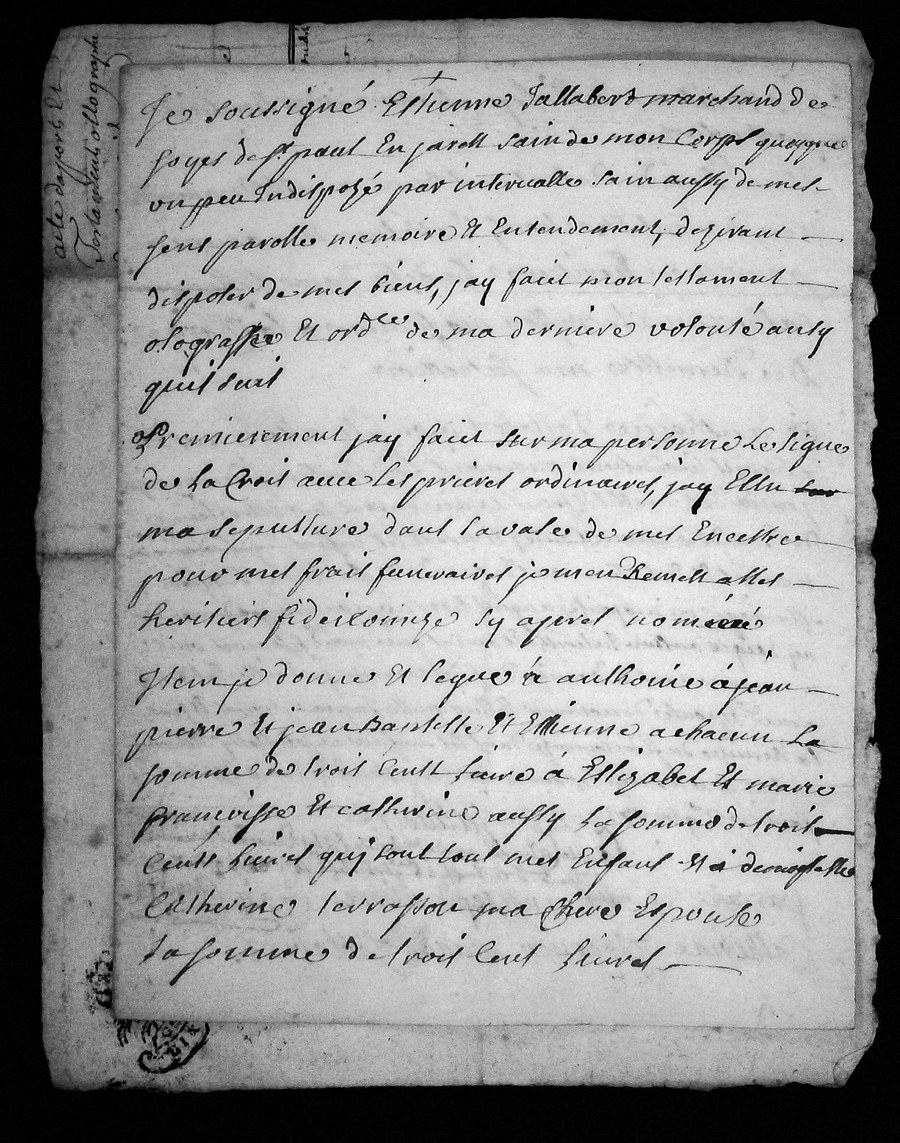 acte de port Et
Testament ollographe
Je soussigné Estienne Jallabert marchand de
soyes de st paul En jarest sain de mon Corps quoyque
un peu Indispozé par intervalle sain aussy de mes
sens parolle memoire Et Entendement, dezirant
disposer de mes biens, jay faict mon testament
olograffe Et ordce de ma derniere volonté ainsy
quil suit
Premierement jay faict sur ma personne Le signe
de La Croit avec Les prieres ordinaires, jay Ellu
ma sepulture dans la vase de mes Encestre
pour mes frais funeraires je men Remest a Mes
heritiers sy apres nomé
Item je donne Et legue à anthoine à jean
pierre Et jean Baptiste Et Ettienne a chacun La
somme de trois Cents Livre à Ellizabet Et marie
francoisse Et catherine aussy La somme de trois
Cents Livres quy sont tous mes Enfans Et à demoiselle
Catherine terrasson ma Chere Espouse
La somme de trois Cent Livres